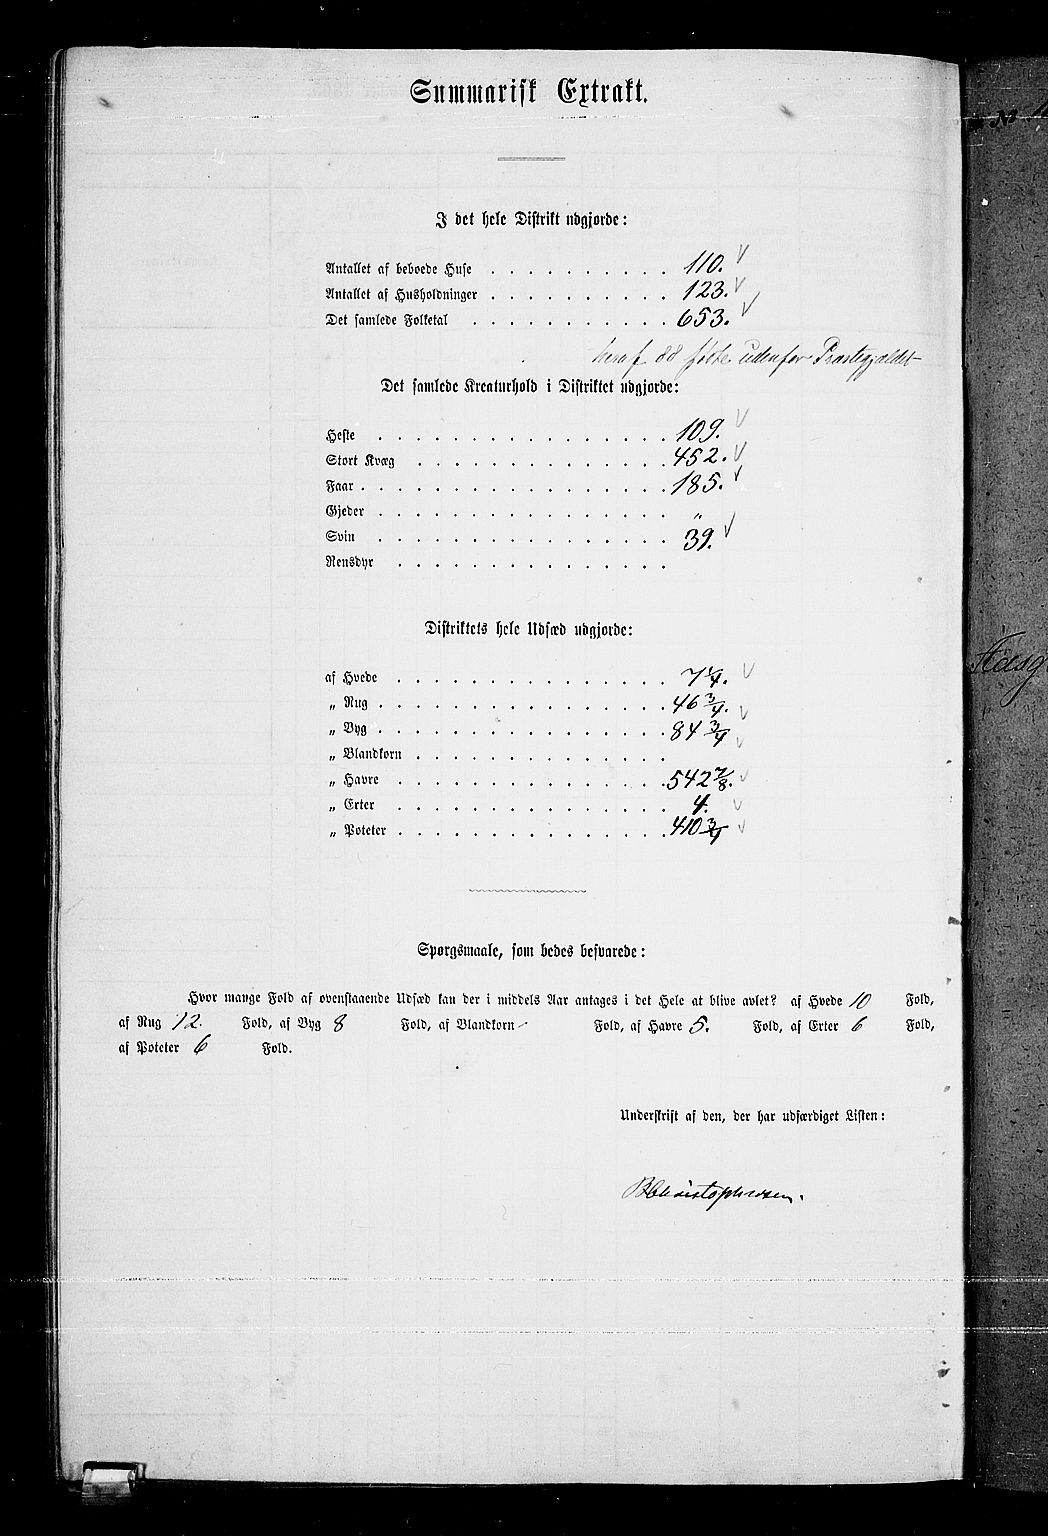 Summarisk Extrakt.
I det hele Distrikt udgjorde:
Antallet af beboede Huse . . . . . . . . . . 110.
Antallet af Husholdninger . . . . . . . . . . 123.
Det samlede Folketal . . . . . . . . . . . 653.
heraf 88 folke udenfor Præstegjældet
Det samlede Kreaturhold i Distriktet udgjorde:
Heste . . . . . . . . . . . . . . . . 109.
Stort Kvæg . . . . . . . . . . . . . . 452.
Faar . . . . . . . . . . . . . . . . . 185.
Gjeder . . . . . . . . . . . . . . . . „
Svin . . . . . . . . . . . . . . . . 39.
Rensdyr . . . . . . . . . . . . . . .
Distriktets hele Udsæd udgjorde:
af Hvede . . . . . . . . . . . . . . . 7 1/4.
„ Rug . . . . . . . . . . . . . . . . 46 3/4.
„ Byg . . . . . . . . . . . . . . . . 84 3/4
„ Blandkorn . . . . . . . . . . . . . .
„ Havre . . . . . . . . . . . . . . . 542 7/8.
„ Erter . . . . . . . . . . . . . . . 4.
„ Poteter . . . . . . . . . . . . . . . 410 3/4
Spørgsmaale, som bedes besvarede:
Hvor mange Fold af ovenstaaende Udsæd kan der i middels Aar antages i det Hele at blive avlet? af Hvede 10 Fold,
af Rug 12. Fold, af Byg 8 Fold, af Blandkorn - Fold, af Havre 5. Fold, af Erter 6 Fold,
af Poteter 6 Fold.
Underskrift af den, der har udfærdiget Listen:
B Christophersen.
No